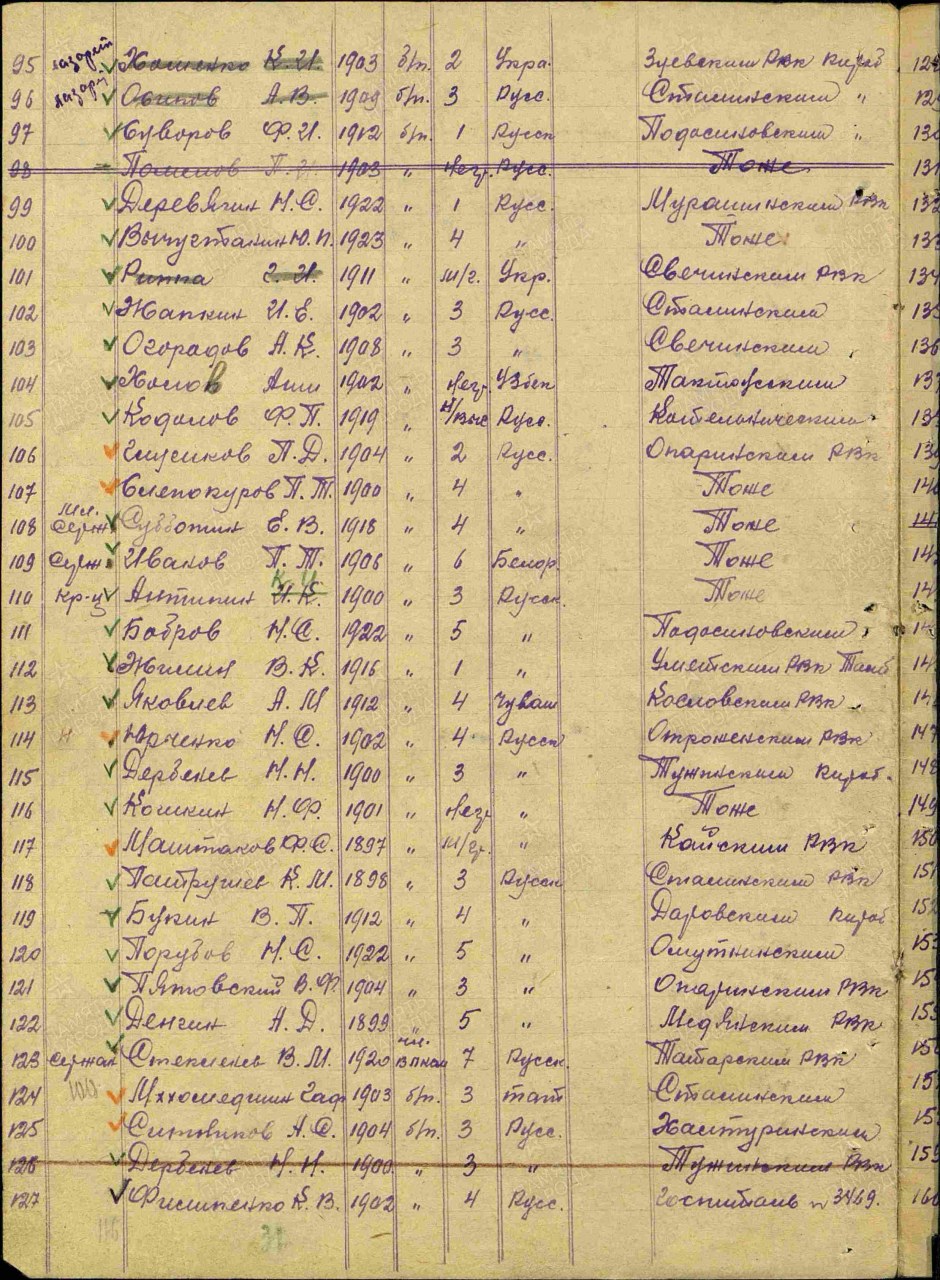 95 лазарет Хоменко К. И. 1903 б/п. 2 Укра. Зуевским РВК Киров 12
96 лазарет Осипов А. В. 1909 б/п. 3 Русс. Сталинским " 12
97 Суворов Ф. И. 1912 б/п. 1 Русск Подосиновским " 130
98 П. 1903 " негр. Русс. Тоже 131
99 Деревягин Н. С. 1922 " 1 Русс. Мурашинским РВК 132
100 Ю. П. 1923 " 4 " Тоже 133
101 Риппа 1911 " м/г. Укр. Свечинским РВК 134
102 Жапкин И. Е. 1902 " 3 Русс. Сталинским 135
103 Огородов А. К. 1908 " 3 " Свечинским 136
104 Хослов 1902 " негр Узбек 137
105 Кодолов Ф. П. 1919 " Русс. Котельническим 13
106 П. Д. 1904 " 2 Русс. Опаринским РВК 139
107 Слепокуров П. Т. 1900 " 4 " Тоже 14
108 мл. Серж Субботин Е. В. 1918 " 4 " Тоже
109 Серж. Иванов П. Т. 1906 " 6 Белор. Тоже 142
110 кр-ц Антипин К. И. 1900 " 3 Русск. Тоже 14
111 Бобров Н. С. 1922 " 5 " Подосиновским 14
112 Жилин В. К. 1916 " 1 " Уметским РВК Тамб 14
113 Яковлев А. М 1912 " 4 Чуваш Кословским РВК 14
114 н Юрченко Н. С. 1902 " 4 Русск Отроженским РВК 147
115 Дербенев Н. Н. 1900 " 3 " Тужинским Киров. 148
116 Кошкин Н. Ф. 1901 " негр " Тоже 149
117 Маштаков Ф. С. 1897 " м/гр. " Кайским РВК 150
118 Патрушев К. М. 1898 " 3 Русск Сталинским РВК 151
119 Букин В. П. 1912 " 4 " Даровским Киров 152
120 Порубов Н. С. 1922 " 5 " Омутнинским 153
121 Пятовский В. Ф 1904 " 3 " Опаринским РВК 15
122 Денгин А. Д. 1899 " 5 " Медянским РВК 155
123 сержан В. М. 1920 чл. 7 Русск. Татарским РВК 15
124 100 1903 б/п. 3 тат Сталинским 15
125 Ситников А. С. 1904 б/п. 3 Русс. Халтуринским 15
126 Дербенев Н. Н. 1900. " 3 " Тужинским РВК 159
127 Филипенко К. В. 1902 " 4 Русс. Госпиталь № 3469. 160
116 31